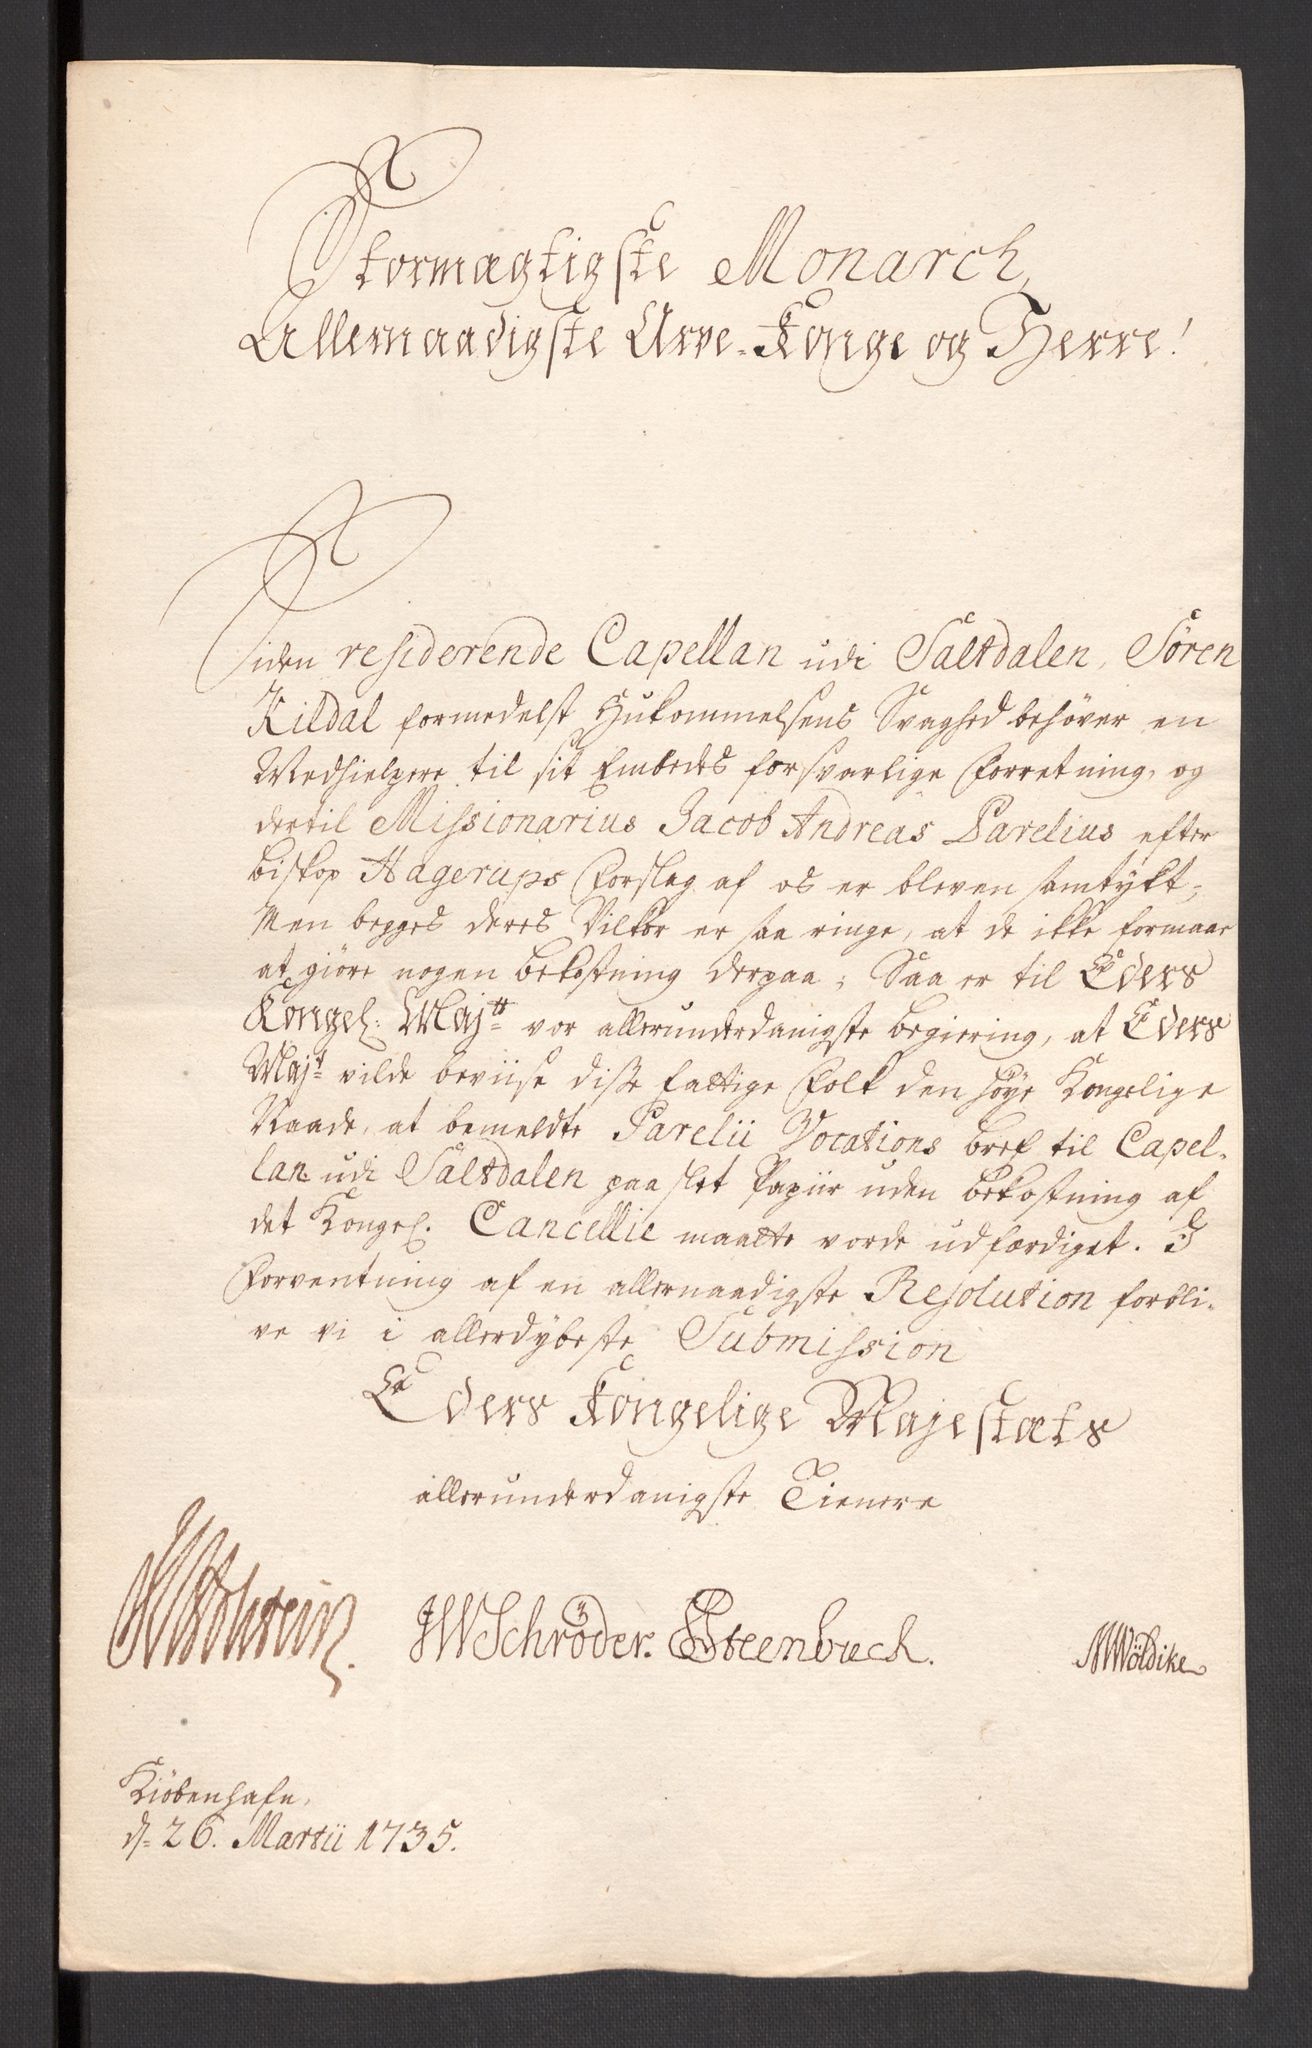 Stormægtigste Monarch,
Allernaadigste Arve-Konge og Herre!
Siden residerende Capellan udi Saltdalen, Sören
Kildal formedelst Hukommelsens Svaghed behøver en
Medhielpere til sit Embedes forsvarlige Forretning, og
dertil Missionarius Jacob Andreas Parelius efter
Biskop Hagerups Forslag af os er bleven samtykt;
Men begges deres Vilkor er saa ringe, at de ikke formaae
at giöre nogen Bekostning derpaa; Saa er til Eders
Kongel: Majts vor allerunderdanigste begiering, at Eders
Majt vilde beviise disse fattige Folk den höye Kongelige
Naade, at bemeldte Parelii Vocations bref til Capel-
lan udi Saltdalen paa slet Papiir uden Bekostning af
det Kongel. Cancellie maatte vorde udfærdiget. I
Forventning af en allernaadigste Resolution forbli-
ve vi i allerdybeste Submission
Eders Kongelige Majestæts
allerunderdanigste Tienere
Holstein. JWSchröder. Steenbuch. MWöldike
Kiöbenhafn,
d. 26. Martii 1735.